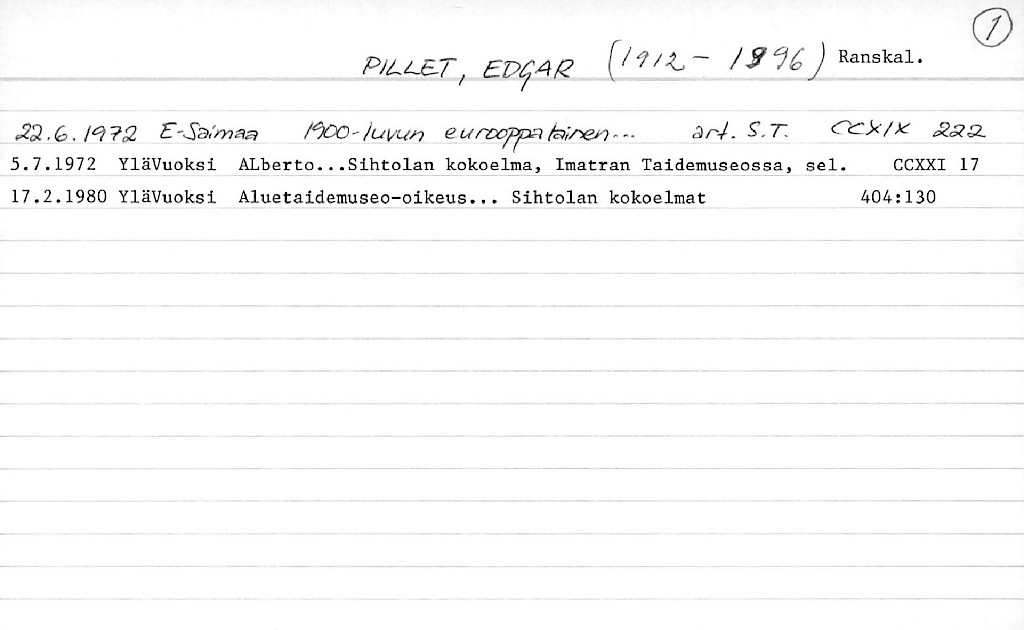 1
PILLET, EDGAR (1912 - 1996) Ranskal.
22.6.1972 E-Saimaa 1900-luvun eurooppalainen... art. S.T. CCXIX 222
5.7.1972 YläVuoksi ALberto...Sihtolan kokoelma, Imatran Taidemuseossa, sel. CCXXI 17
17.2.1980 YläVuoksi Aluetaidemuseo-oikeus... Sihtolan kokoelmat 404:130